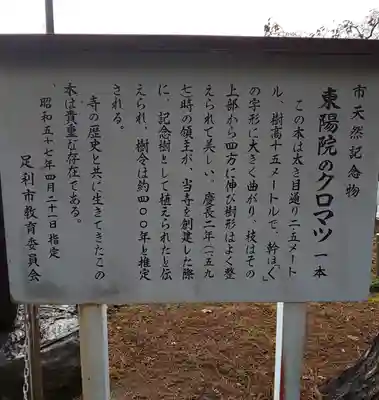 市天然記念物
東陽院のクロマツ 一本
この木は大き目通り二・五メート
ル、樹高十五メートルで、幹は「く」
の字形に大きく曲がり、枝はその
上部から四方に伸び樹形はよく整
えられて美しい。慶長二年(一五九
七)時の領主が、当寺を創建した際
に、記念樹として植えられたと伝
えられ、樹令は約四〇〇年と推定
される。
寺の歴史と共に生きてきたこの
木は貴重な存在である。
昭和五十七年四月二十一日指定
足利市教育委員会